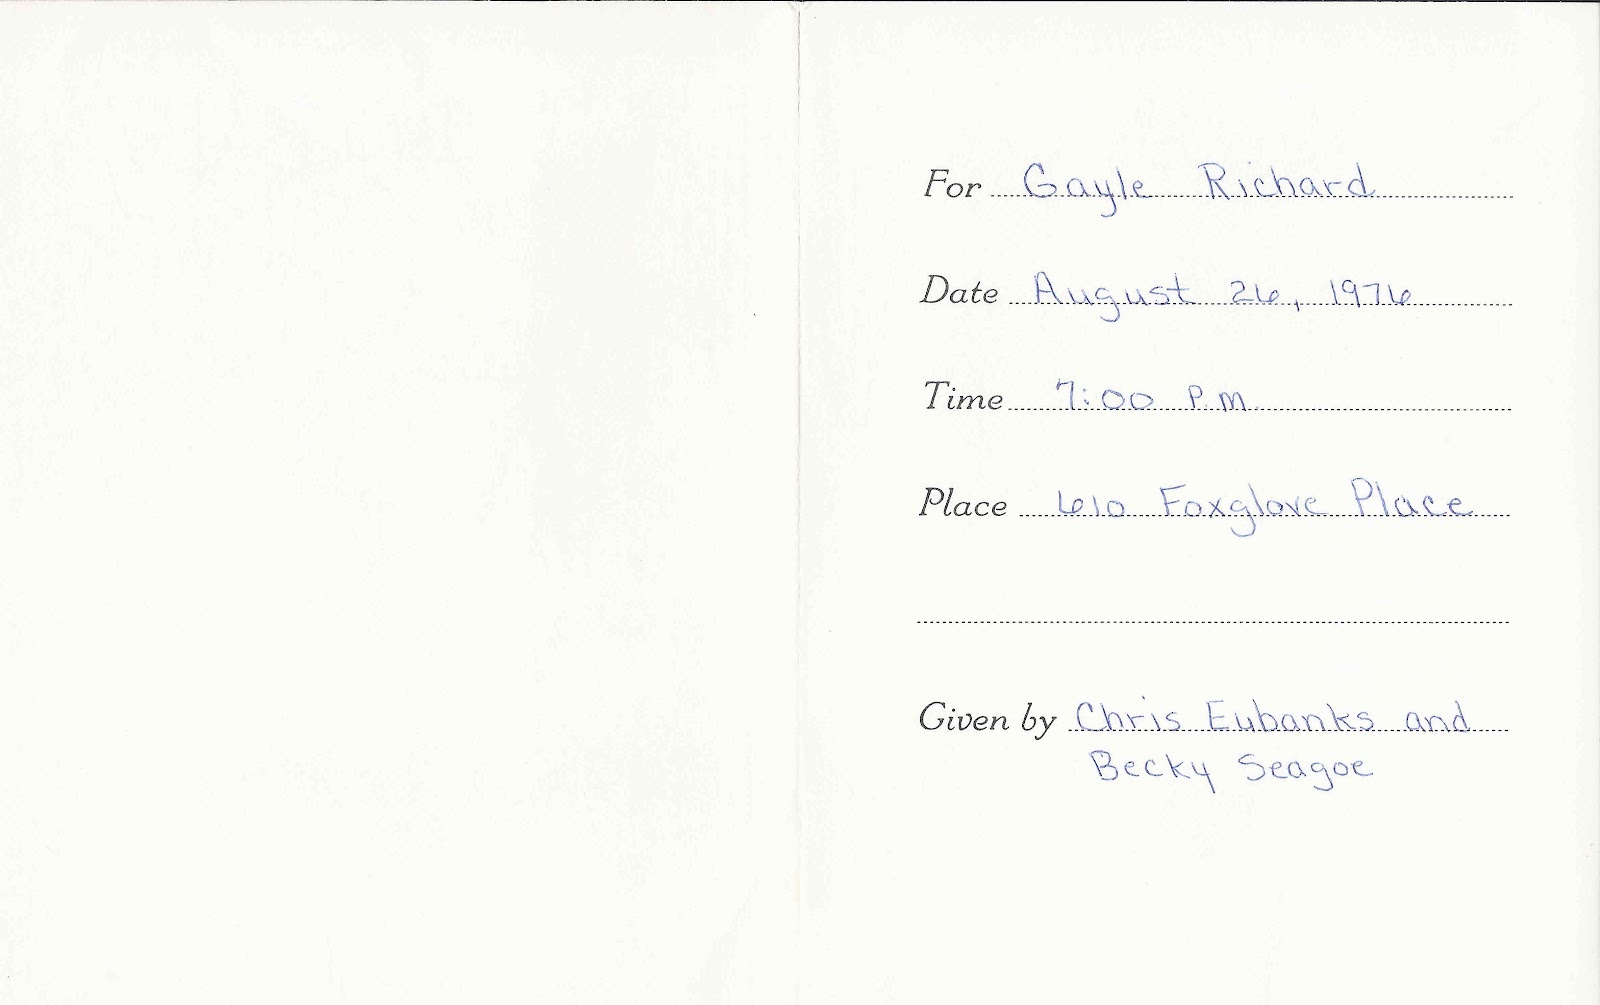 For Gayle Richard
Date August 26, 1976
Time 7:00 P.M.
Place 610 Foxglove Place
Given by Chris Eubanks and
Becky Seagoe